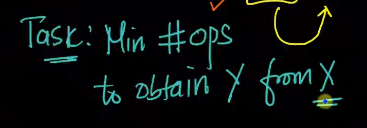 Task: Min #ops
to obtain Y from X